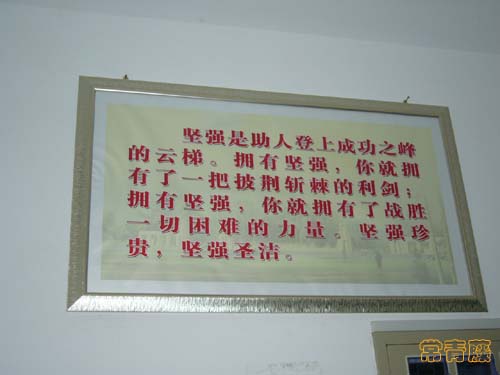 坚强是助人登上成功之峰
的云梯。拥有坚强，你就拥
有了一把披荆斩棘的利剑；
拥有坚强，你就拥有了战胜
一切困难的力量。坚强珍
贵，坚强圣洁。
常青藤